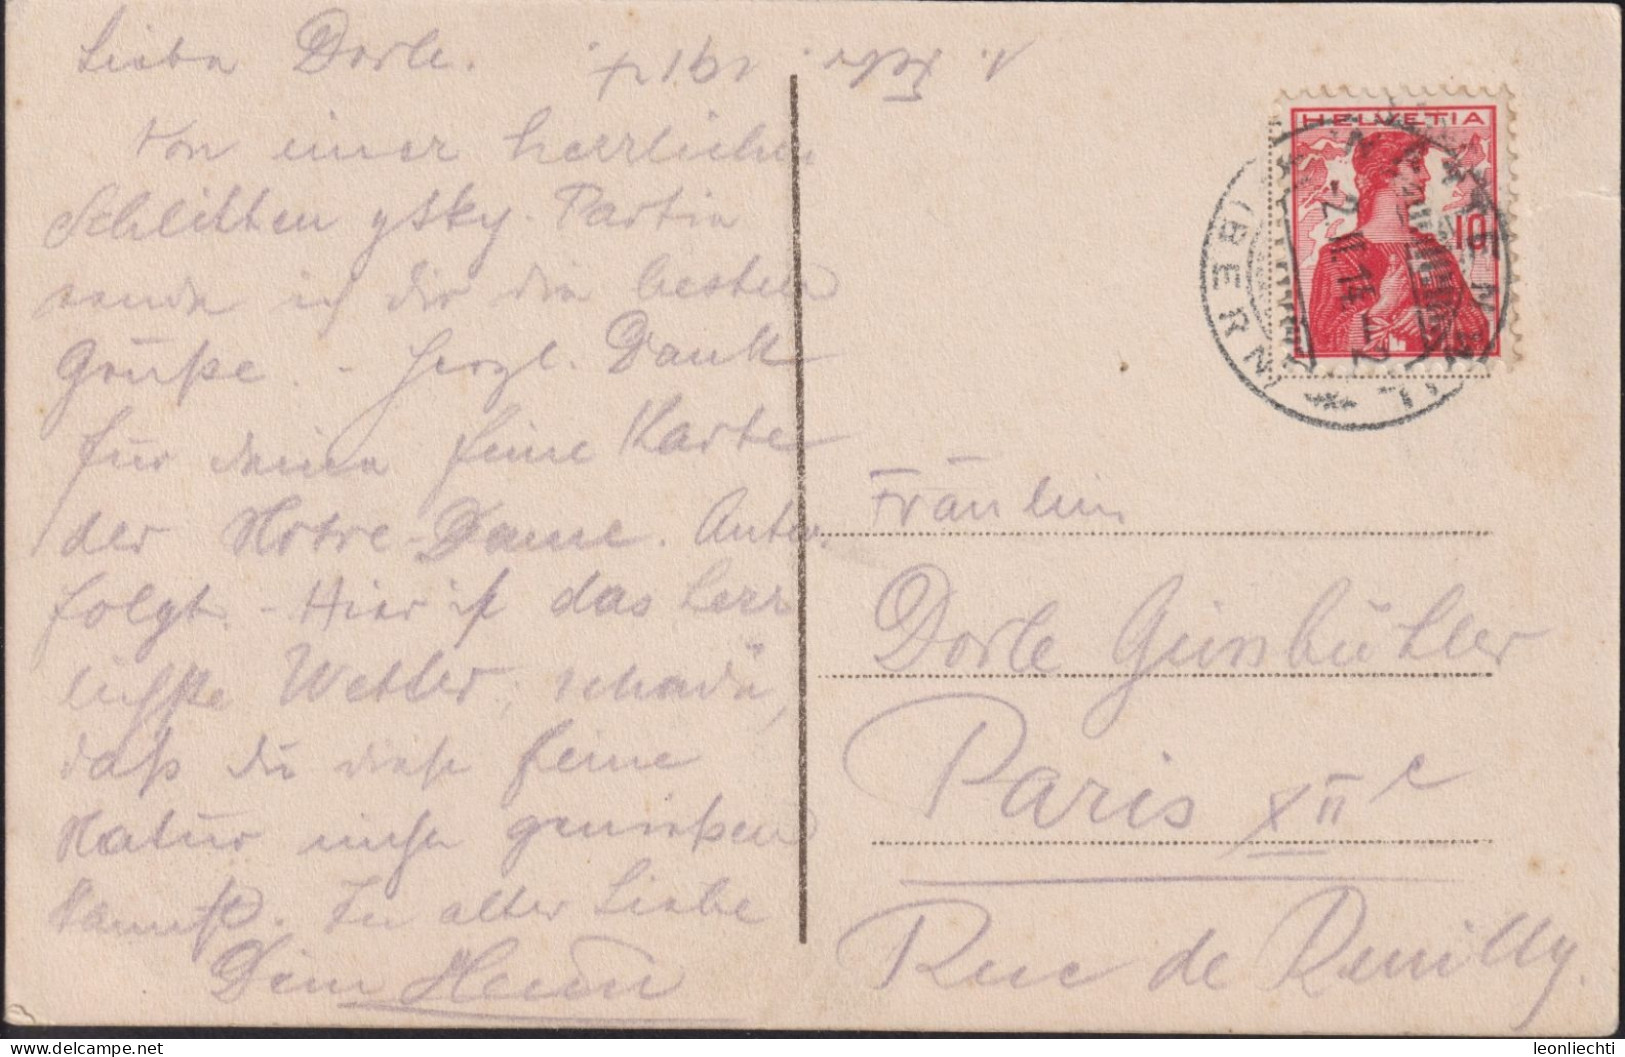 Liebe Dorle.
1. Febr. 1914.
Von einer herrlichen
Schlitten Partie
sende ich dir die besten
Grüße. - Herzl. Dank
für deine feine Karte
der Notre-Dame. Antw.
folgt. - Hier ist das herr
lichste Wetter, schade,
daß du diese feine
Natur nicht genießen
kannst. In alter Liebe
Dein
HELVETIA
10
(BERN)
Fräulein
Dorle
Paris XIIe
Rue de Reuilly.
leonliechti
delcampe.net